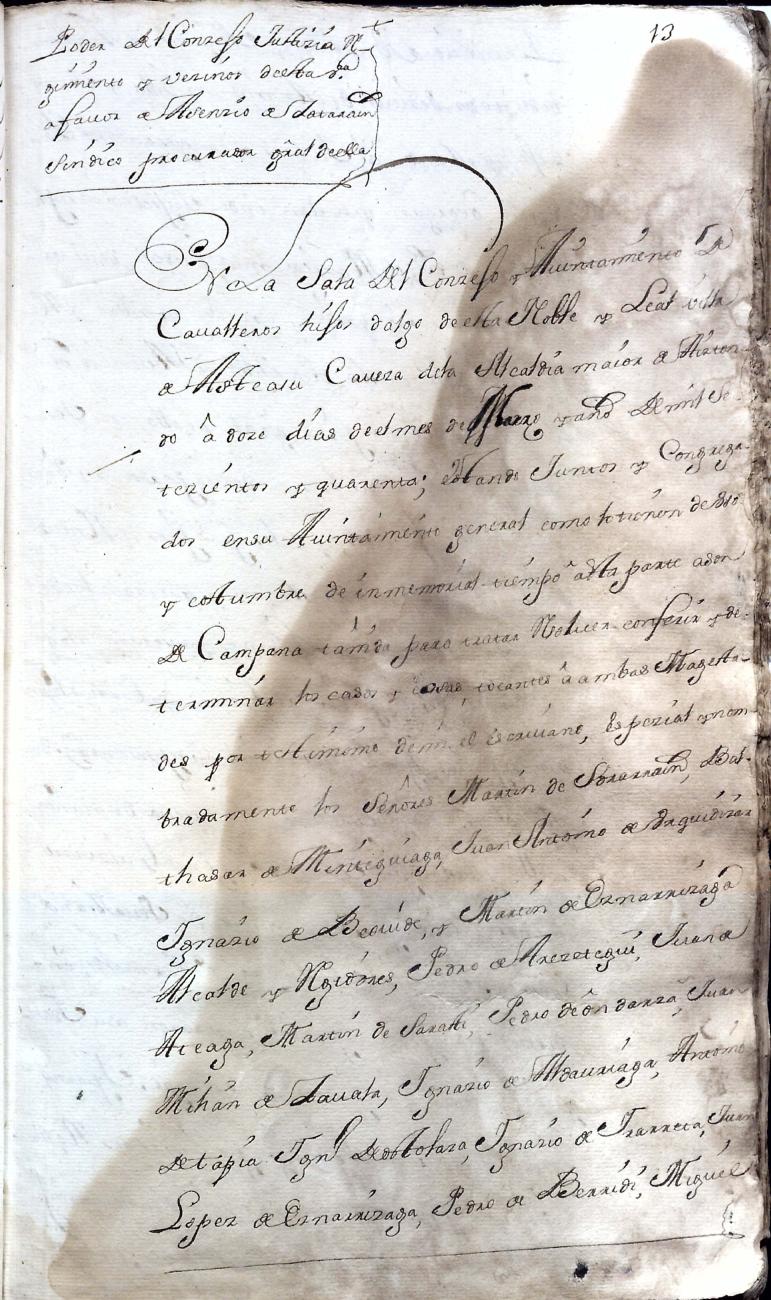 13
Poder del Conzejo Justizia Re-
gimiento y vezinos de esta v.ª
a favor de Asenzio de Latarain
sindico procurador gral de ella
En La Sala del Conzejo y Aiuntamiento de
Cavalleros hijos dalgo de esta Noble y Leal villa
de Asteasu Caveza de la Alcaldia maior de Aizton-
do â doze dias de el mes de y año de mil Se-
tezientos y quarenta; estando Juntos y Congrega-
dos en su Aiuntamiento general como lo tienen de uso
y costumbre de inmemorial tiempo â esta parte a son
de Campana tañida para tratar Resolver conferir y de-
terminar los casos y cosas tocantes â ambas Magesta-
des por testimonio de mi el escrivano, Espezial y nom-
bradamente los Señores Martin de Sorarrain, Bal-
thasar de Minteguiaga, Juan Antonio de Eguidizar
Ignazio de Beovide, y Martin de Eznarrizaga
Alcalde y Regidores, Pedro de Arezetegui, Juan de
Aceaga, Martin de Sarasti, Pedro de Ondarza, Juan
Mihàn de Zavala, Ignazio de Alzauriaga, Antonio
de tapia Ign.º de Ostolaza, Ignazio de Irarreta, Juan
Lopez de Eznarrizaga, Pedro de Berridi, Miguel